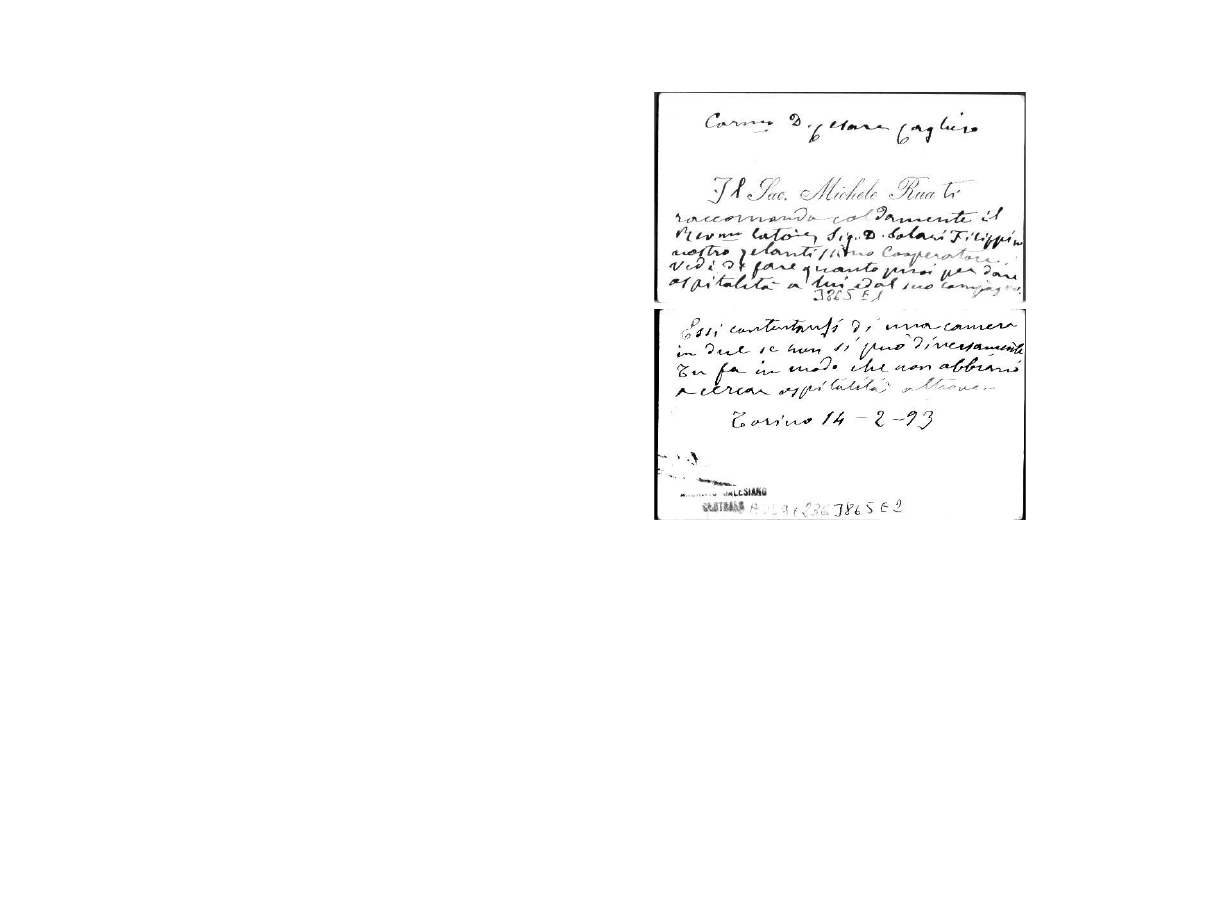 Carmo D. Cesare Cagliero
Il Sac. Michele Rua ti
raccomanda caldamente il
Sig. D. Solari Filippino
nostro zelantissimo Cooperatore.
Vedi di fare quanto puoi per dare
ospitalità a lui ed al suo compagno.
J865E1
Essi contentansi di una camera
in due se non si può diversamente
Tu fa in modo che non abbiano
a cercar ospitalità altrove.
Torino 14-2-93
SALESIANO
CENTRALE J865E2